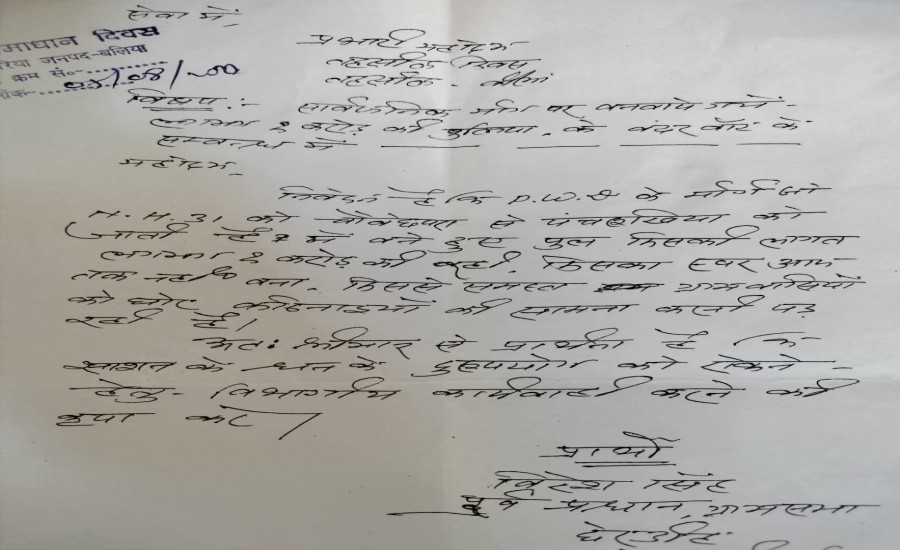 सेवा में,
माधान दिवस
रिया जनपद-बलिया
क्रम सं०
प्रभारी महोदय
तहसील दिवस
तहसील -
विषय :- सार्वजनिक मार्ग पर बनवाये गये -
लगभग 2 करोड़ की पुलिया, के संदर्भ के
सम्बन्ध में
महोदय,
निवेदन है कि P.W.D के मार्ग जो
N. H. 31 को से को
जाती है में बने हुए पुल जिसकी लागत
लगभग 2 करोड़ की रही, जिसका आज
तक नहीं बना. जिससे समस्त ग्रामवासियों
को घोर कठिनाइयों की सामना करनी पड़
रही है।
अतः श्रीमान से प्रार्थना है कि
शासन के धन के दुरुपयोग को रोकने -
हेतु - विभागीय कार्यवाही करने की
कृपा करें।
प्रार्थी
सिंह
पूर्व प्रधान, ग्रामसभा